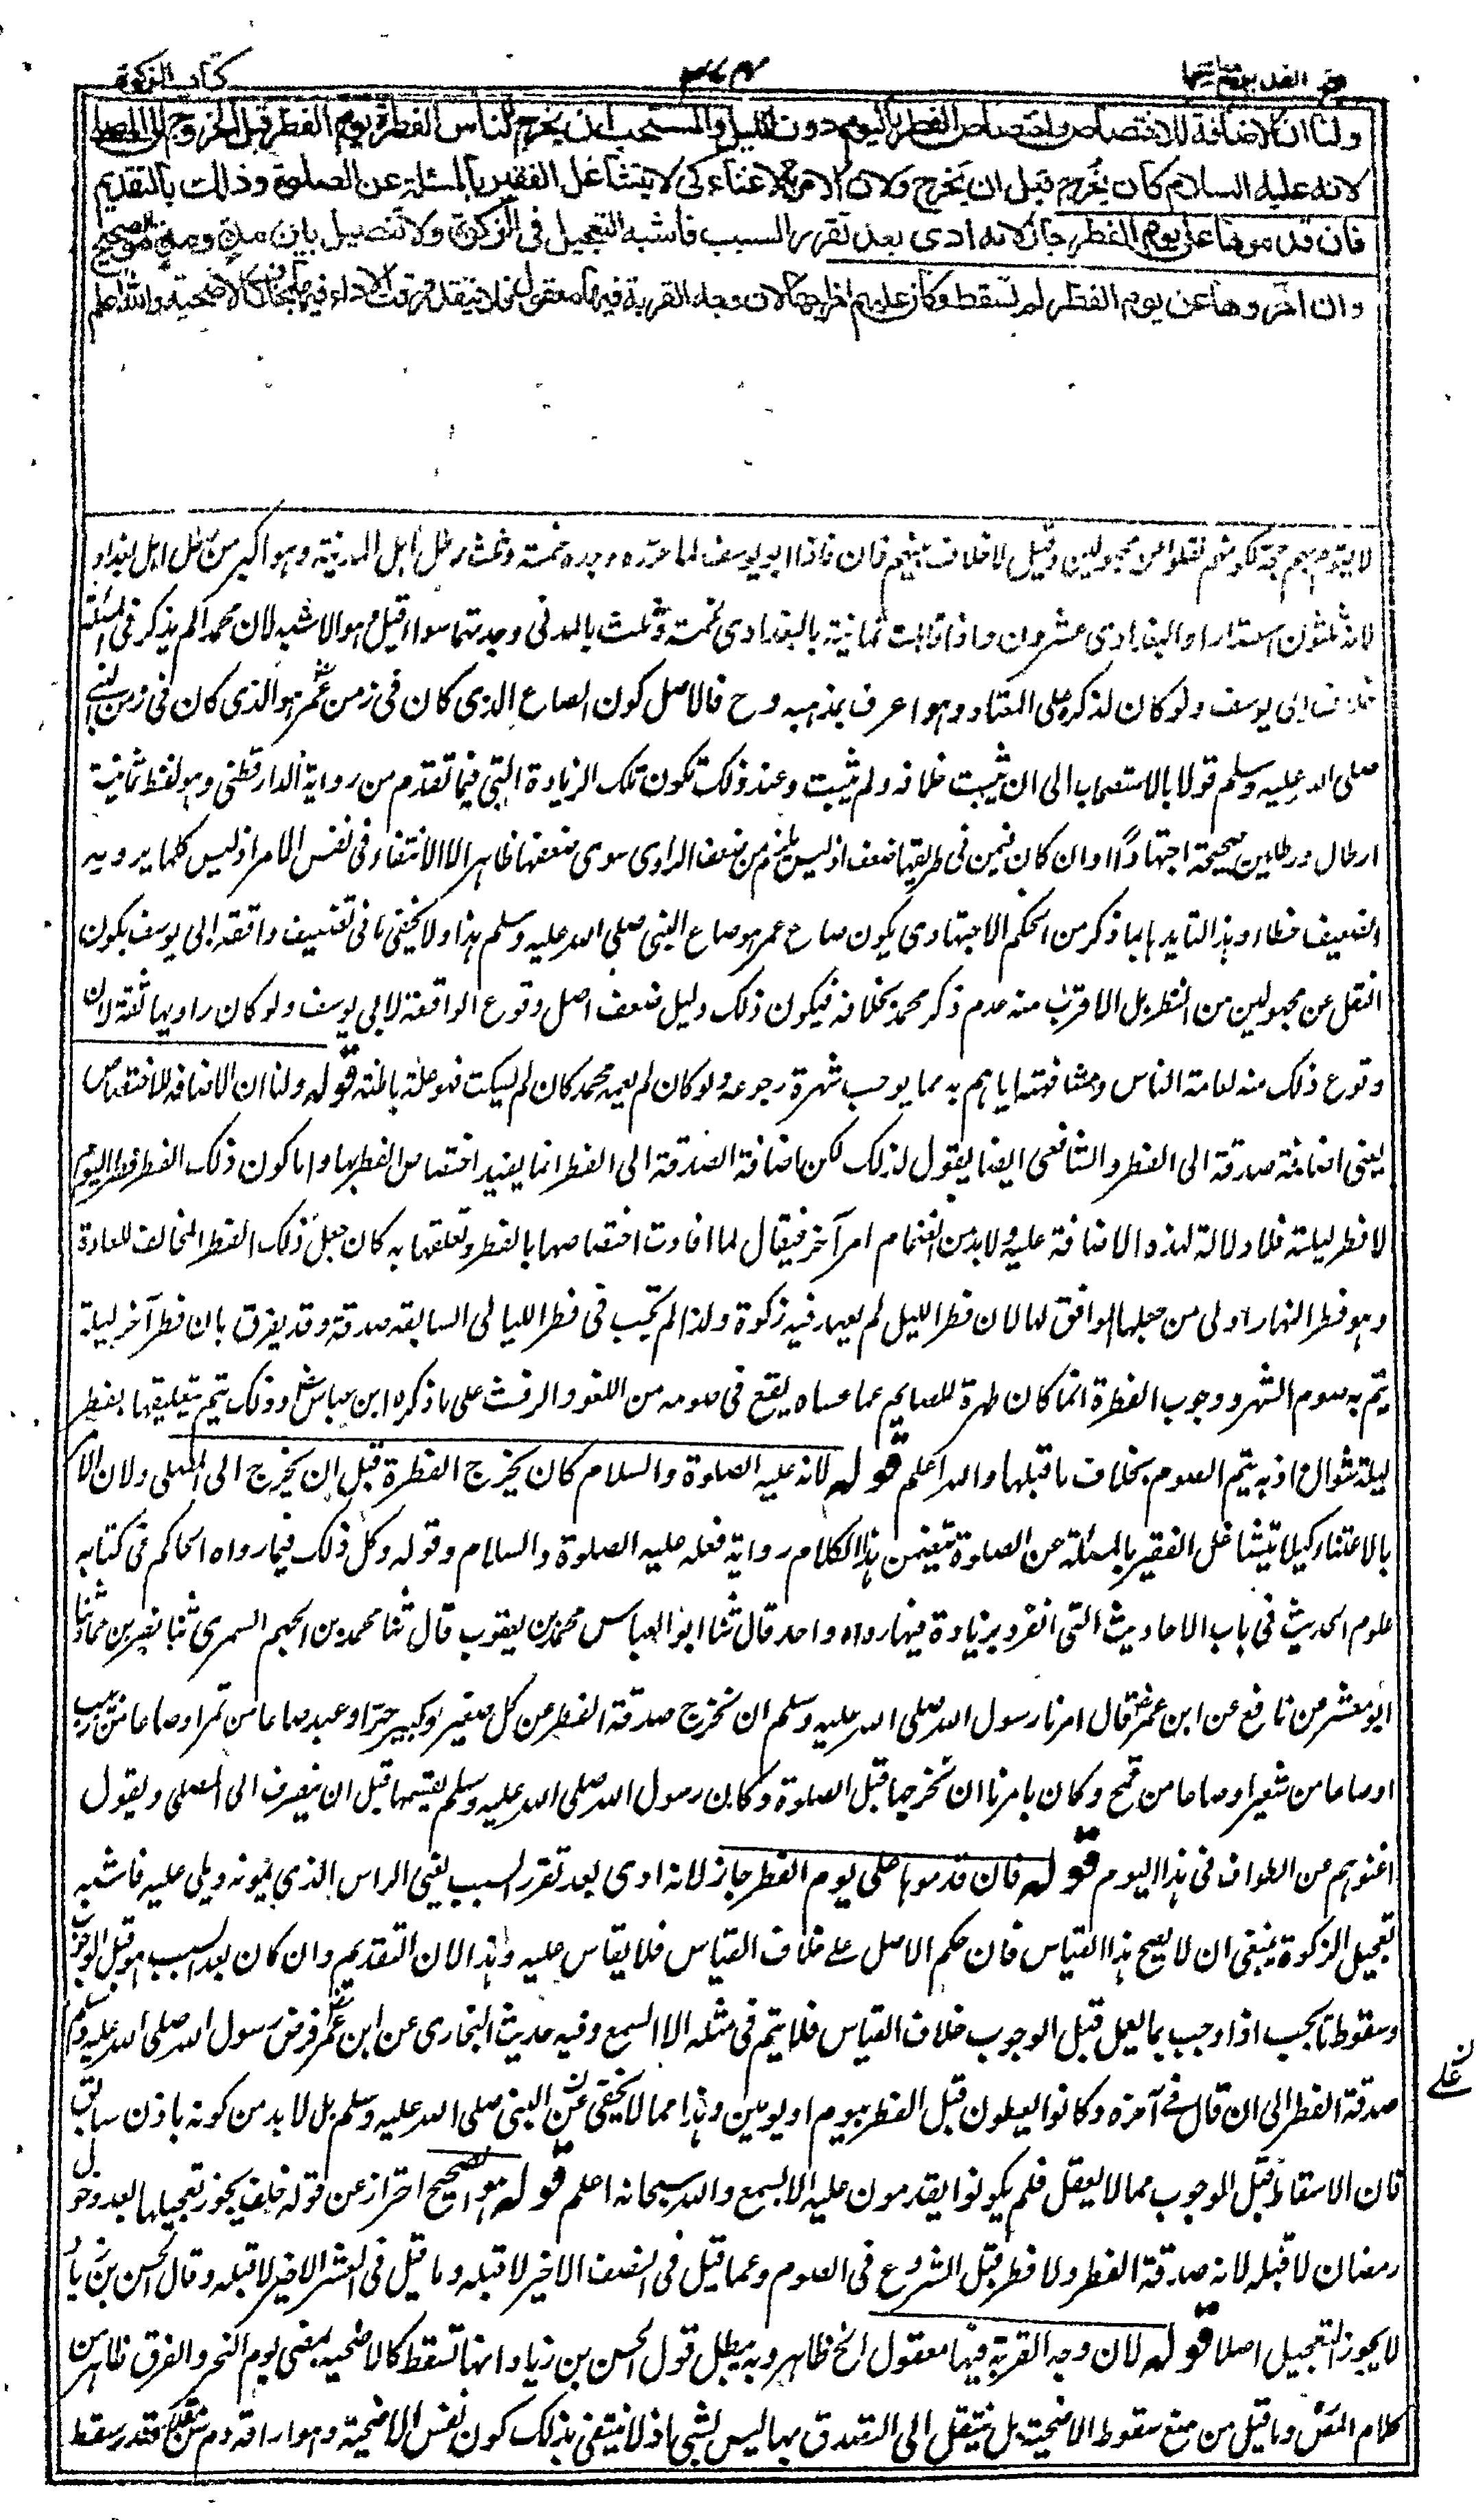 فتح القدير مع الهداية
٣٧٤
كتاب الزكوة
ولنا ان الاضافة للاختصاص واختصاص الفطر باليوم دون الليل والمستحب ان يخرج الناس الفطرة يوم الفطر قبل الخروج الى المصلى
لانه عليه السلام كان يخرج قبل ان يخرج ولان الامر بالاغناء كى لا يتشاغل الفقير بالمسئلة عن الصلوة وذلك بالتقديم
فان قدموها على يوم الفطر جاز لانه ادى بعد تقرر السبب فاشبه التعجيل فى الزكوة ولا تفصيل بين مدة ومدة هو الصحيح
وان اخروها عن يوم الفطر لم تسقط وكان عليهم اخراجها لان وجه القربة فيها معقول فلا يتقدر وقت الاداء فيها بخلاف الاضحية والله اعلم
لا يقوم بهم حجة لكونهم نقلوا عن مجهولين وقيل لا خلاف بينهم فان ابا يوسف لما حرره وجده خمسة وثلث رطل اهل المدينة وهو اكبر من رطل اهل بغداد
لانه ثلثون استارا والبغدادى عشرون واذا قابلت ثمانية بالبغدادى بخمسة وثلث بالمدنى وجدتهما سواء قيل هو الاشبه لان محمدا لم يذكر فى المسئلة
خلاف ابى يوسف ولو كان لذكره على المعتاد وهو اعرف بمذهبه وح فالاصل كون الصاع الذى كان فى زمن عمر هو الذى كان فى زمن النبى
صلى الله عليه وسلم قولا بالاستصحاب الى ان يثبت خلافه ولم يثبت وعند ذلك تكون تلك الزيادة التى فيما تقدم من رواية الدارقطنى وهو لفظ ثمانية
ارطال ورطلين صحيحة اجتهادا وان كان فيمن فى طريقها ضعف اذ ليس يلزم من ضعف الراوى سوى ضعفها ظاهرا لا الانتفاء فى نفس الامر اذ ليس كلما يرويه
الضعيف خطاء وهذا لتايدها بما ذكر من الحكم الاجتهادى بكون صاع عمر هو صاع النبى صلى الله عليه وسلم هذا ولا يخفى ما فى تضعيف واقعة ابى يوسف بكون
النقل عن مجهولين من النظر بل الاقرب منه عدم ذكر محمد بخلافه فيكون ذلك دليل ضعف اصل وقوع الواقعة لابى يوسف ولو كان راويها ثقة لان
وقوع ذلك منه لعامة الناس ومشافهته اياهم به مما يوجب شهرة رجوعه ولو كان لم يعمه محمد كان لم يسكت فهو علة باطنة قوله ولنا ان الاضافة للاختصاص
يعنى اضافة صدقة الى الفطر والشافعى ايضا يقول لذلك لكن اضافة الصدقة الى الفطر انما يفيد اختصاص الفطر بها واما كون ذلك الفطر فطر اليوم
لا فطر ليلته فلا دلالة لهذه الاضافة عليه ولا بد من انضمام امر آخر فيقال لما افادت اختصاصها بالفطر وتعلقها به كان جعل ذلك الفطر المخالف للعادة
وهو فطر النهار اولى من جعلها الموافق لها لان فطر الليل لم يعهد فيه زكوة ولذا لم تجب فى فطر الليالى السابقة صدقة وقد يفرق بان فطر آخر ليلة
يتم به صوم الشهر ووجوب الفطرة انما كان طهرة للصايم عما عساه يقع فى صومه من اللغو والرفث على ما ذكره ابن عباس وذلك يتم بتعليقها بفطر
ليلة شوال اذ به يتم الصوم بخلاف ما قبلها والله اعلم قوله لانه عليه الصلوة والسلام كان يخرج الفطرة قبل ان يخرج الى المصلى ولان الامر
بالاغناء كيلا يتشاغل الفقير بالمسئلة عن الصلوة يتضمن هذا الكلام رواية فعله عليه الصلوة والسلام وقوله وكل ذلك فيما رواه الحاكم فى كتابه
علوم الحديث فى باب الاحاديث التى انفرد بزيادة فيها رواه واحد قال ثنا ابو العباس محمد بن يعقوب قال ثنا محمد بن الجهم السمرى ثنا نصر بن حماد ثنا
ابو معشر عن نافع عن ابن عمر قال امرنا رسول الله صلى الله عليه وسلم ان نخرج صدقة الفطر عن كل صغير وكبير حر او عبد صاعا من تمر او صاعا من زبيب
او صاعا من شعير او صاعا من قمح وكان يامرنا ان نخرجها قبل الصلوة وكان رسول الله صلى الله عليه وسلم يقسمها قبل ان ينصرف الى المصلى ويقول
اغنوهم عن الطواف فى هذا اليوم قوله فان قدموها على يوم الفطر جاز لانه ادى بعد تقرر السبب يعنى الراس الذى يمونه ويلى عليه فاشبه
تعجيل الزكوة ينبغى ان لا يصح هذا القياس فان حكم الاصل على خلاف القياس فلا يقاس عليه وهذا لان التقديم وان كان بعد السبب هو قبل الوجوب
وسقوط ما يجب اذا وجب بما يعمل قبل الوجوب خلاف القياس فلا يتم فى مثله الا السمع وفيه حديث البخارى عن ابن عمر فرض رسول الله صلى الله عليه وسلم
صدقة الفطر الى ان قال فى آخره وكانوا يعطون قبل الفطر بيوم او يومين وهذا مما لا يخفى عن النبى صلى الله عليه وسلم بل لا بد من كونه باذن سابق
ن على
فان الاسقاط قبل الوجوب مما لا يعقل فلم يكونوا يقدمون عليه الا بسمع والله سبحانه اعلم قوله هو الصحيح احتراز عن قول خلف يجوز تعجيلها بعد دخول
رمضان لا قبله لانه صدقة الفطر ولا فطر قبل الشروع فى الصوم وعما قيل فى النصف الاخير لا قبله وما قيل فى العشر الاخير لا قبله وقال الحسن بن زياد
لا يجوز التعجيل اصلا قوله لان وجه القربة فيها معقول الخ ظاهر وبه يبطل قول الحسن بن زياد انها تسقط كالاضحية بمضى يوم النحر والفرق ظاهر من
كلام المص وما قيل من منع سقوط الاضحية بل ينتقل الى التصدق بها ليس بشئ اذ لا ينتفى بذلك كون نفس الاضحية وهو اراقة دم سن مقدر سقط